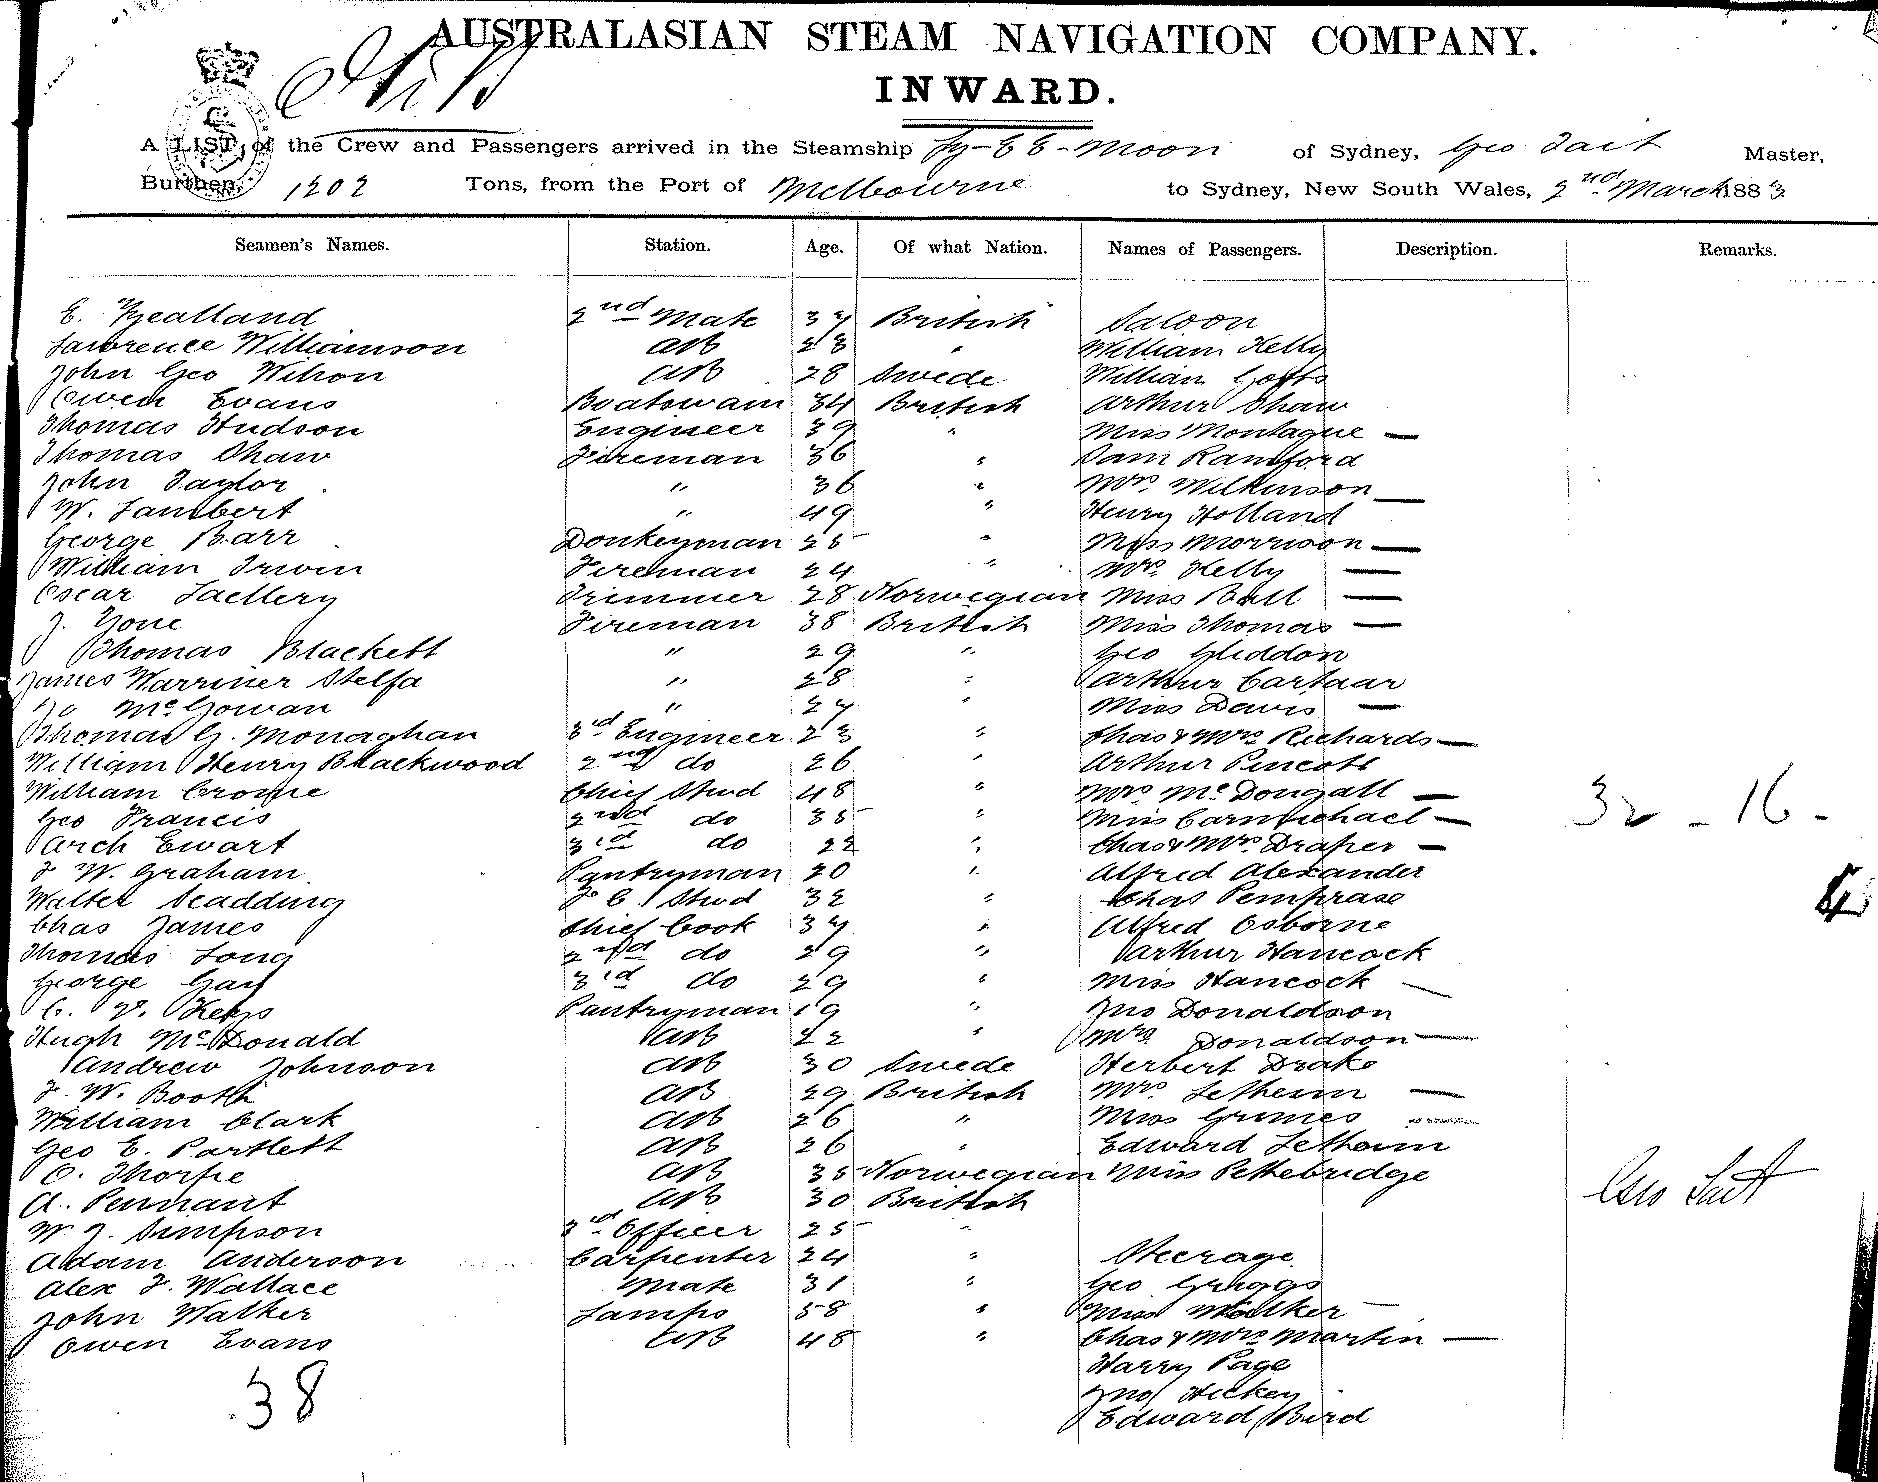 AUSTRALASIAN STEAM NAVIGATION COMPANY.
INWARD.
A LIST, of the Crew and Passengers arrived in the Steamship Ly-EE-Moon of Sydney, Geo Tait Master,
Burthen, 1202 Tons, from the Port of Melbourne to Sydney, New South Wales, 2nd March 1883
Seamen's Names. Station. Age. Of what Nation. Names of Passengers. Description. Remarks.
E. Zealland 2nd Mate 37 British Saloon
Lawrence Williamson AB 23 " William Kelly
John Geo Wilson AB 28 Swede William Goffs
Owen Evans Boatswain 34 British Arthur Shaw
Thomas Hudson Engineer 39 " Miss Montague —
Thomas Shaw Fireman 36 " Sam Ransford
John Taylor " 36 " Mrs. Wilkinson —
W. Lambert " 49 " Henry Holland
George Barr Donkeyman 25 " Miss Morrison —
William Irwin Fireman 24 " Mrs. Kelly —
Oscar Trimmer 28 Norwegian Miss Ball —
J. Yone Fireman 38 British Miss Thomas —
Thomas Blackett " 29 " Geo Gliddon
James Warriner Stelfa " 28 " Arthur Cartaar
McGowan " 27 " Miss Davis —
Thomas G. Monaghan 3rd Engineer 23 " Chas & Mrs Richards —
William Henry Blackwood 2nd do 26 " Arthur Pencott
William Crome Chief Stwd 48 " Mrs McDougall —
Geo Francis 2nd do 35 " Miss Carmichael —
Arch Ewart 3rd do 22 " Chas & Mrs. Draper —
J W. Graham Pantryman 20 " Alfred Alexander
Walter Scadding F C. Stwd 32 " Chas Pemprase
Chas James Chief Cook 37 " Alfred Osborne
Thomas Long 2nd do 29 " Arthur Hancock
George Gay 3rd do 29 " Miss Hancock —
C. Keys Pantryman 19 " Jno Donaldson
Hugh McDonald AB 22 " Mrs Donaldson —
Andrew Johnson AB 30 Swede Herbert Drake
J. W. Booth AB 29 British Mrs Lethern —
William Clark AB 26 " Miss Grimes —
Geo E. Partlett AB 26 " Edward Lethern
O. Thorpe AB 35 Norwegian Miss Pethebridge
A. Pennant AB 30 British
W J. Simpson 3rd Officer 25 "
Adam Anderson Carpenter 24 " Steerage
Alex J. Wallace Mate 31 " Geo Griggs
John Walker Lamps 58 " Miss Walker —
Owen Evans AB 48 " Chas & Mrs Martin —
Harry Page
Jno Hickey
Edward Bird
38
32 - 16 -
Geo Tait